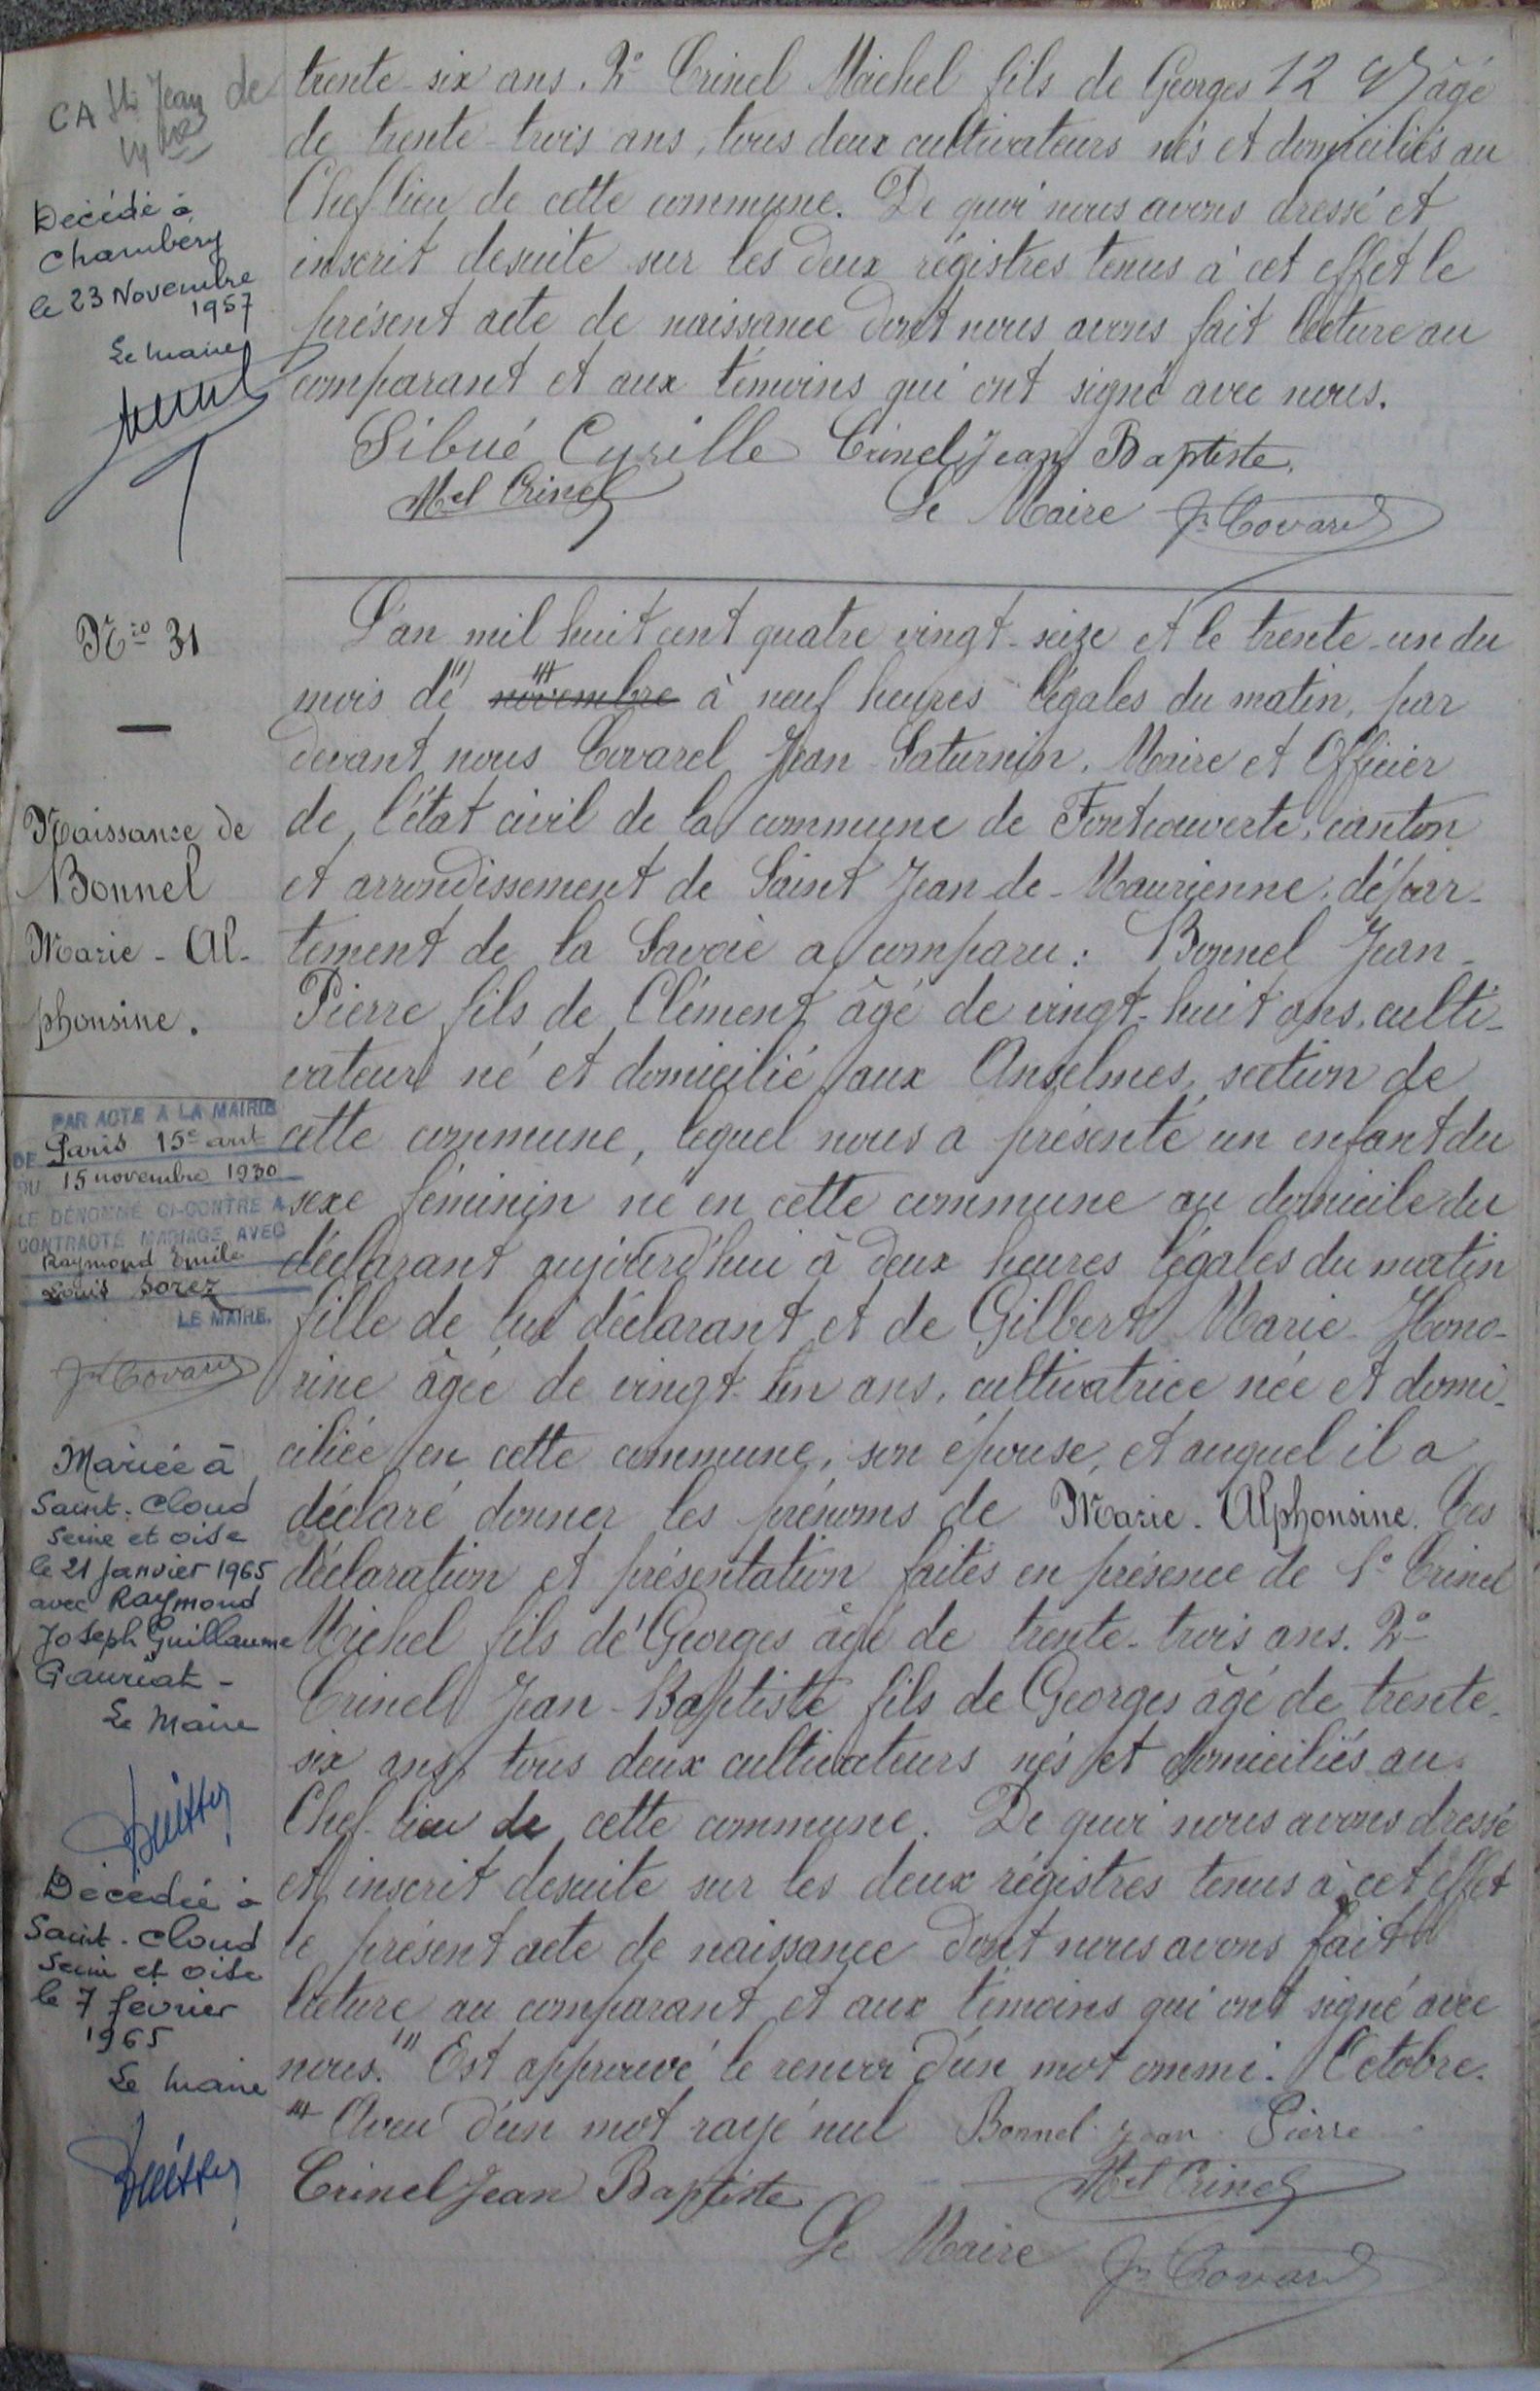 trente-six ans. 2° Crinel Michel fils de Georges 12 âgé
de trente-trois ans, tous deux cultivateurs nés et domiciliés au
Chef lieu de cette commune. De quoi nous avons dressé et
inscrit desuite sur les deux régistres tenus à cet effet le
présent acte de naissance dont nous avons fait lecture au
comparant et aux témoins qui ont signé avec nous.
Sibué Cyrille Crinel Jean Baptiste.
Mel Crinel
Le Maire Jn Covarel
CA St Jean de
Décédé à
Chambéry
le 23 Novembre
1957
Le Maire
Nro 31
Naissance de
Bonnel
Marie-Al-
phonsine.
L'an mil huit cent quatre vingt-seize et le trente-un du
mois de novembre à neuf heures légales du matin, par
devant nous Covarel Jean-Saturnin, Maire et Officier
de l'état civil de la commune de Fontcouverte, canton
et arrondissement de Saint Jean-de-Maurienne, dépar-
tement de la Savoie a comparu : Bonnel Jean-
Pierre fils de Clément âgé de vingt-huit ans, culti-
vateur né et domicilié aux Anselmes, section de
cette commune, lequel nous a présenté un enfant du
sexe féminin né en cette commune au domicile du
déclarant aujourd'hui à deux heures légales du matin
fille de lui déclarant et de Gilbert Marie-Hono-
rine âgée de vingt-un ans, cultivatrice née et domi-
ciliée en cette commune, son épouse, et auquel il a
déclaré donner les prénoms de Marie-Alphonsine. Ces
déclaration et présentation faites en présence de 1° Crinel
Michel fils de Georges âgé de trente-trois ans. 2°
Crinel Jean-Baptiste fils de Georges âgé de trente-
six ans, tous deux cultivateurs nés et domiciliés au
Chef-lieu de cette commune. De quoi nous avons dressé
et inscrit desuite sur les deux régistres tenus à cet effet
le présent acte de naissance dont nous avons fait
lecture au comparant et aux témoins qui ont signé avec
nous. Est approuvé le renvoi d'un mot ommi. Octobre.
Aveu d'un mot rayé nul Bonnel Jean Pierre
Crinel Jean Baptiste Mel Crinel
Le Maire Jn Covarel
PAR ACTE A LA MAIRIE
DE Paris 15e arrt
DU 15 novembre 1930
LE DÉNOMMÉ CI-CONTRE A
CONTRACTÉ MARIAGE AVEC
Raymond Emile
Louis Sorez
LE MAIRE.
Jn Covarel
Mariée à
Saint-Cloud
Seine et Oise
le 21 Janvier 1965
avec Raymond
Joseph Guillaume
Pauriat-
Le Maire
Décédée à
Saint-Cloud
Seine et Oise
le 7 février
1965
Le Maire